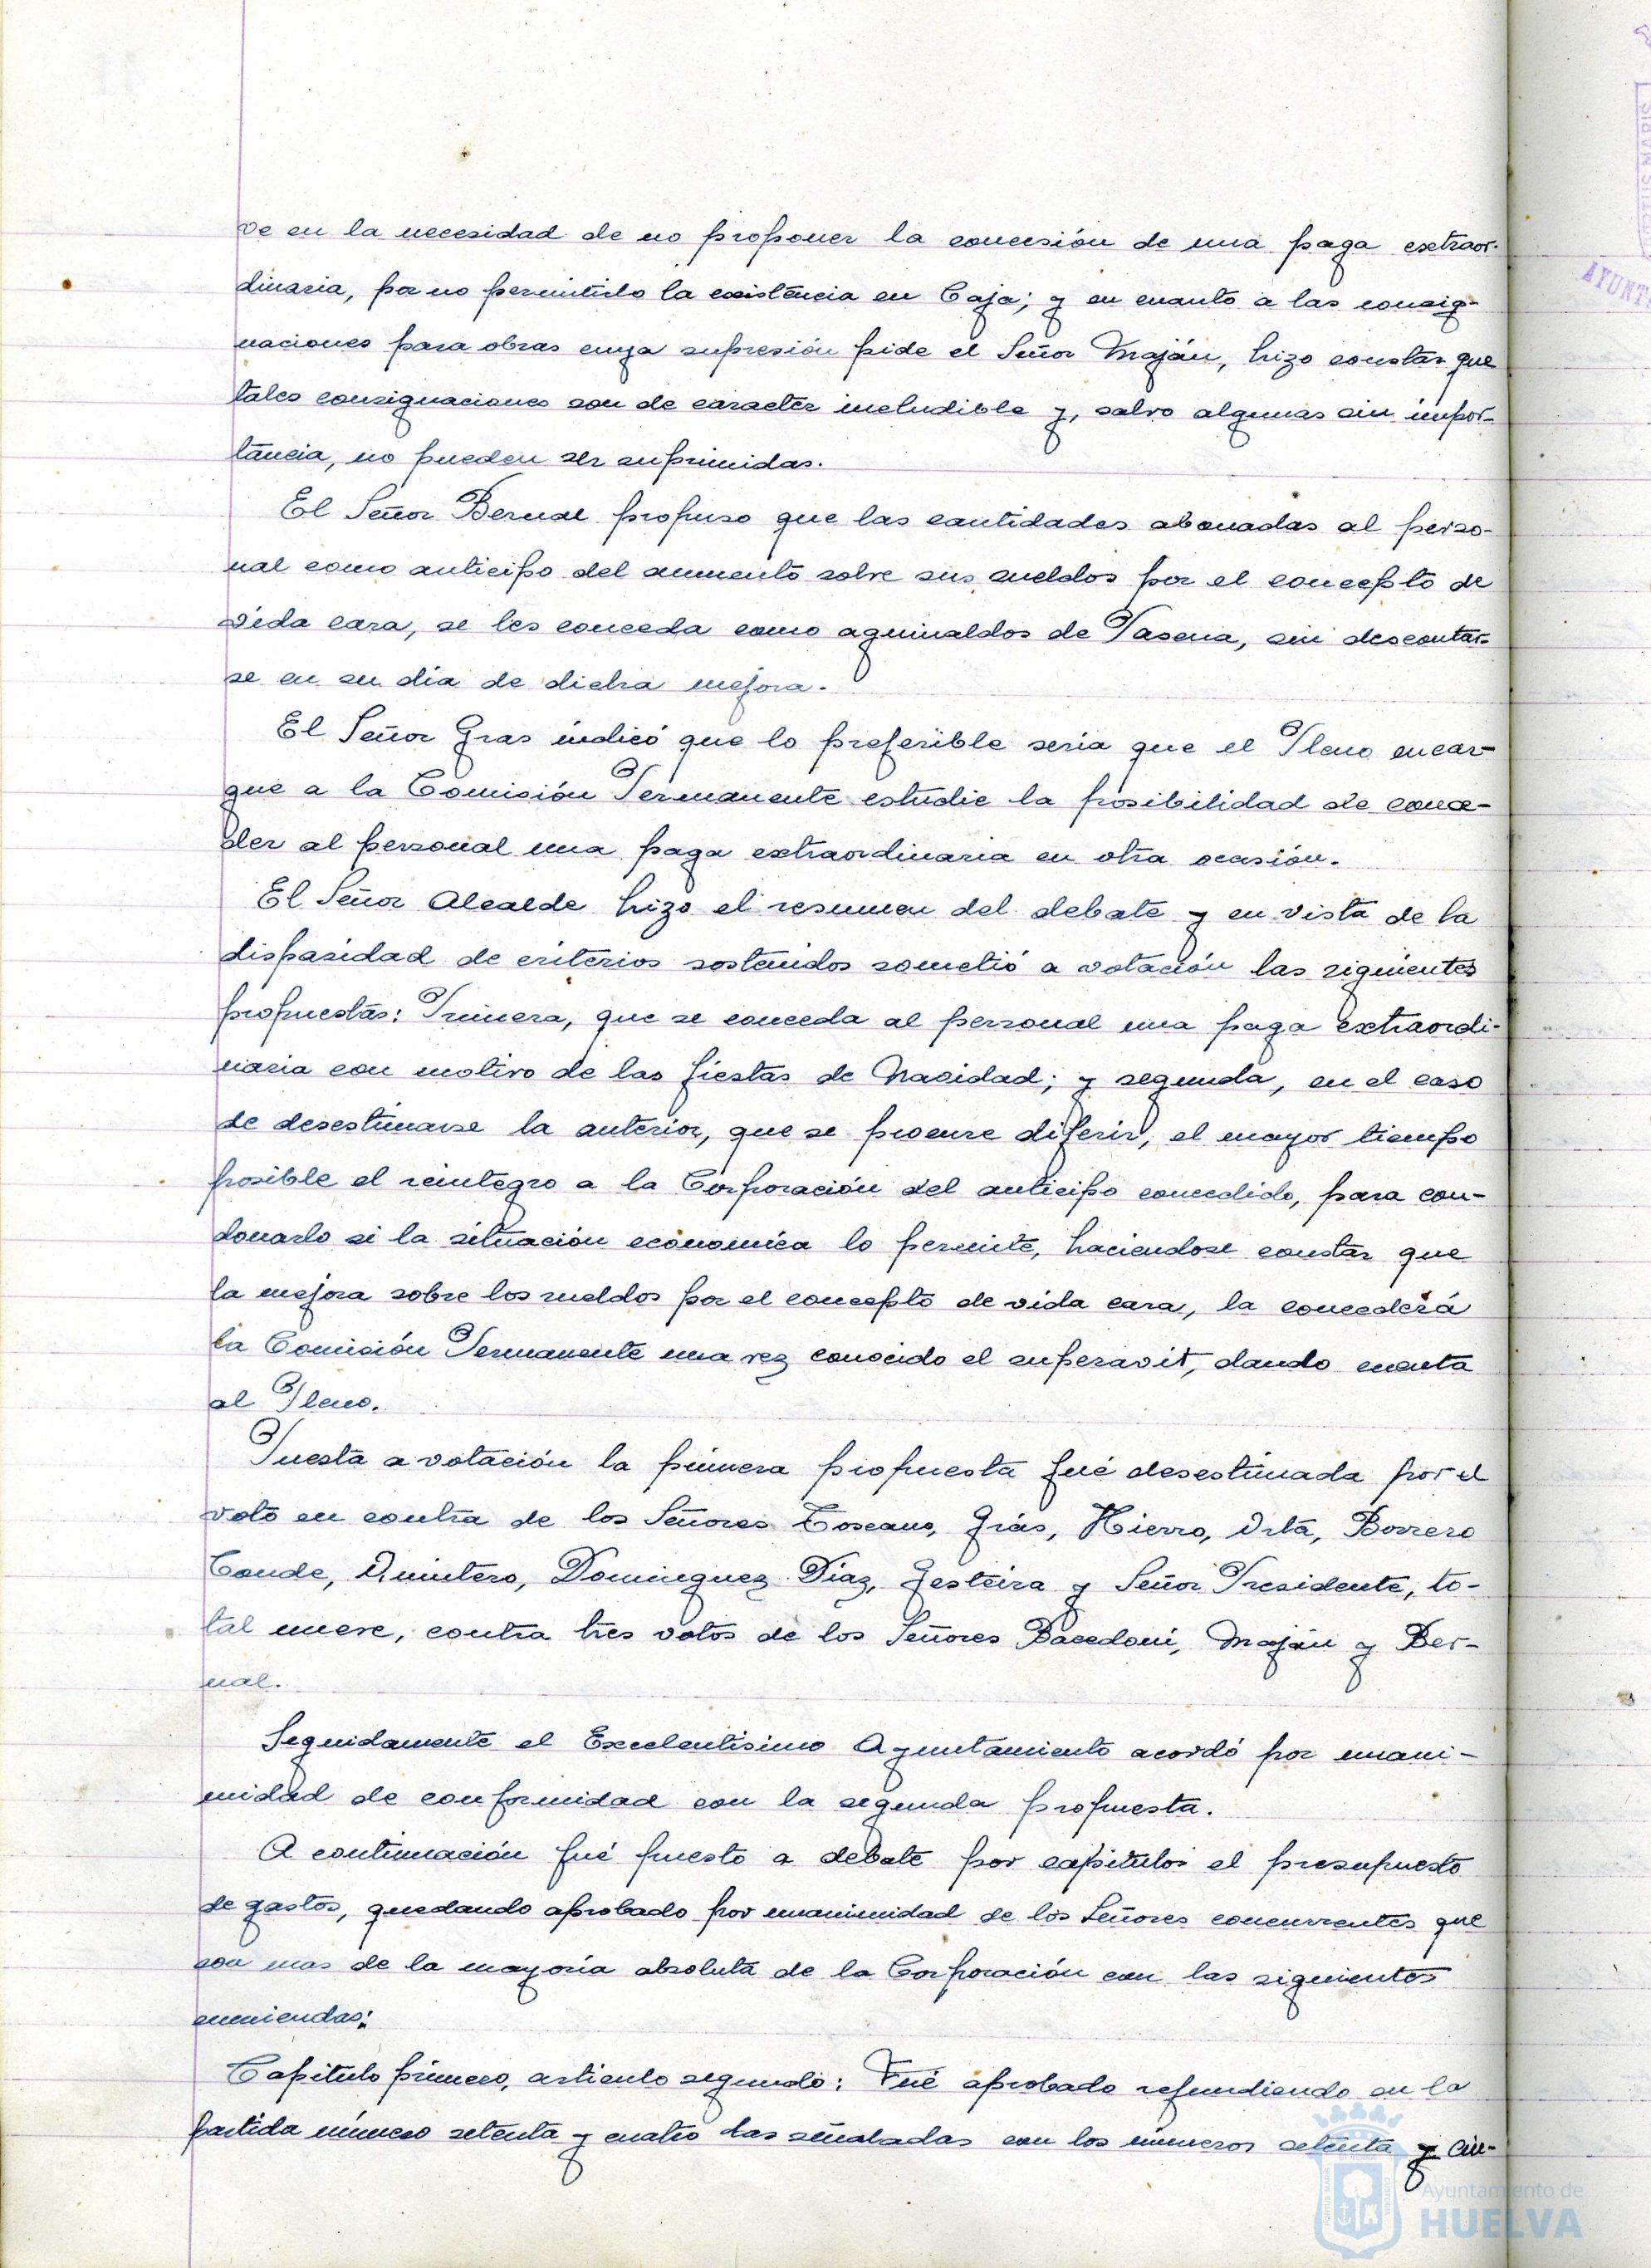 ve en la necesidad de no proponer la concesión de una paga extraor-
dinaria, por no permitirlo la existencia en Caja; y en cuanto a las consig-
naciones para obras cuya supresión pide el Señor Maján, hizo constar que
tales consignaciones son de caracter ineludible y, salvo algunas sin impor-
tancia, no pueden ser suprimidas.
El Señor Bernal propuso que las cantidades abonadas al perso-
nal como anticipo del aumento sobre sus sueldos por el concepto de
vida cara, se les conceda como aguinaldos de Pascua, sin descontar-
se en su dia de dicha mejora.
El Señor Gras indicó que lo preferible seria que el Pleno encar-
gue a la Comisión Permanente estudie la posibilidad de conce-
der al personal una paga extraordinaria en otra ocasión.
El Señor Alcalde hizo el resumen del debate y en vista de la
disparidad de criterios sostenidos sometió a votación las siguientes
propuestas: Primera, que se conceda al personal una paga extraordi-
naria con motivo de las fiestas de Navidad; y segunda, en el caso
de desestimarse la anterior, que se procure diferir, el mayor tiempo
posible el reintegro a la Corporación del anticipo concedido, para con-
donarlo si la situación economica lo permite, haciendose constar que
la mejora sobre los sueldos por el concepto de vida cara, la concederá
la Comisión Permanente una vez conocido el superavit, dando cuenta
al Pleno.
Puesta a votación la primera propuesta fué desestimada por el
voto en contra de los Señores Toscano, Grás, Hierro, Orta, Borrero
Conde, Quintero, Dominguez Diaz, Gesteira y Señor Presidente, to-
tal nueve, contra tres votos de los Señores Bacedoni, Maján y Ber-
nal.
Seguidamente el Excelentisimo Ayuntamiento acordó por unani-
midad de conformidad con la segunda propuesta.
A continuación fué puesto a debate por capitulos el presupuesto
de gastos, quedando aprobado por unanimidad de los Señores concurrentes que
son mas de la mayoria absoluta de la Corporación con las siguientes
enmiendas:
Capitulo primero, articulo segundo: Fué aprobado refundiendo en la
partida número setenta y cuatro las señaladas con los números setenta y cin-
Ayuntamiento de
HUELVA
AYUNT